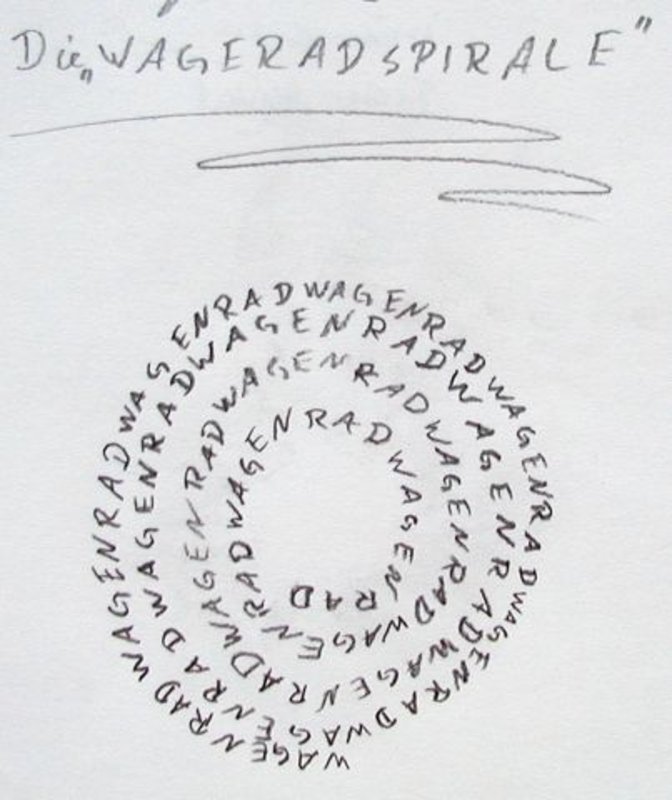 Die „WAGERADSPIRALE"
WAGENRADWAGENRADWAGENRADWAGENRADWAGENRADWAGENRADWAGENRADWAGENRADWAGENRADWAGENRADWAGENRADWAGENRADWAGENRADWAGENRADWAGENRADWAGENRADWAGENRAD